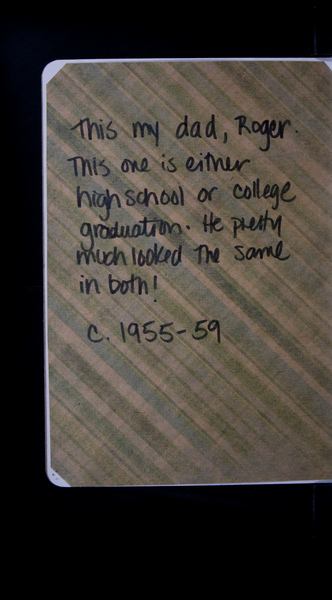 This my dad, Roger.
This one is either
high school or college
graduation. He pretty
much looked the same
in both!
c. 1955-59